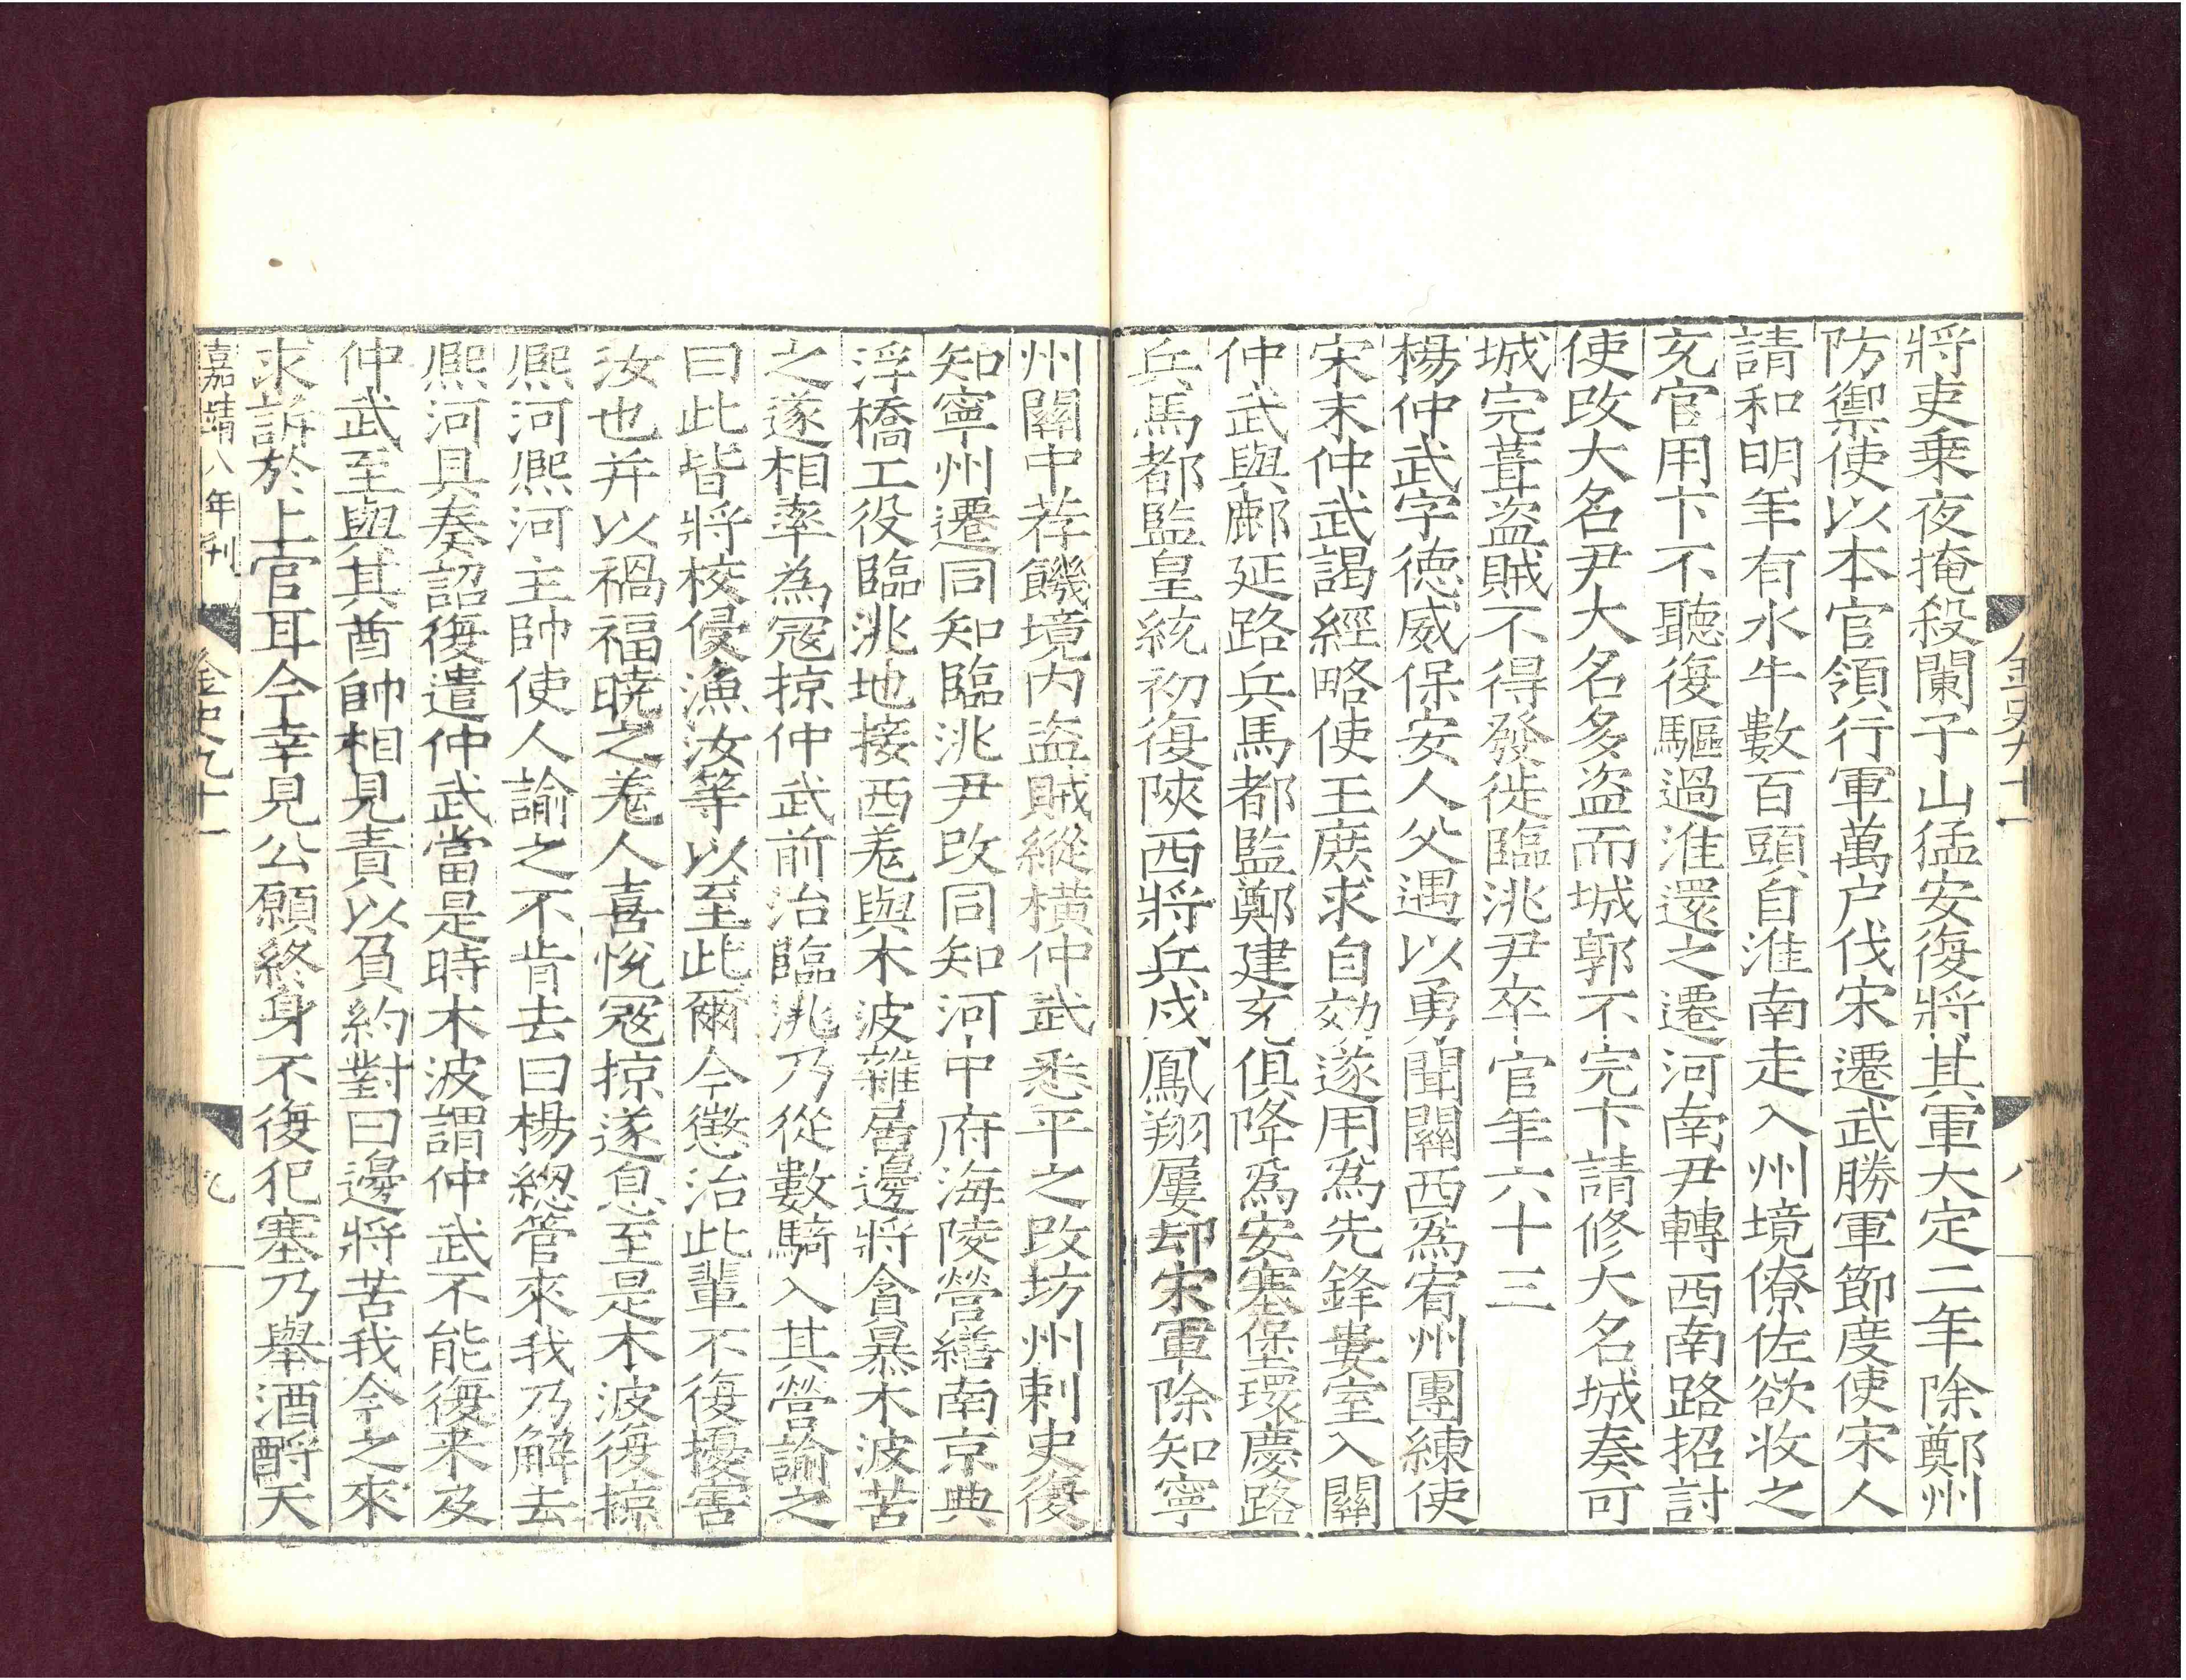 金史九十一
八
將吏乗夜掩殺闌子山猛安復將其軍大定二年除鄭州
防禦使以本官領行軍萬户伐宋遷武勝軍節度使宋人
請和明年有水牛數百頭自淮南走入州境僚佐欲收之
充官用卞不聽復驅過淮還之遷河南尹轉西南路招討
使改大名尹大名多盗而城郭不完卞請修大名城奏可
城完葺盗賊不得發徙臨洮尹卒官年六十三
楊仲武字德威保安人父遇以勇聞關西爲宥州團練使
宋末仲武謁經略使王庶求自効遂用爲先鋒婁室入關
仲武與鄜延路兵馬都監鄭建充俱降爲安塞堡環慶路
兵馬都監皇統初復陝西將兵戍鳳翔屢却宋軍除知寧
州關中荐饑境内盗賊縱橫仲武悉平之改坊州刺史復
知寧州遷同知臨洮尹改同知河中府海陵營繕南京典
浮橋工役臨洮地接西羗與木波雜居邊將貪暴木波苦
之遂相率為冦掠仲武前治臨洮乃從數騎入其營諭之
曰此皆將校侵漁汝等以至此爾今懲治此輩不復擾害
汝也并以禍福曉之羗人喜悅冦掠遂息至是木波復掠
熈河熈河主帥使人諭之不肯去曰楊緫管來我乃解去
熈河具奏詔復遣仲武當是時木波謂仲武不能復来及
仲武至與其酋帥相見責以負約對曰邊將苦我今之來
求訴於上官耳今幸見公願終身不復犯塞乃舉酒酹天
嘉靖八年刊
金史九十一
九